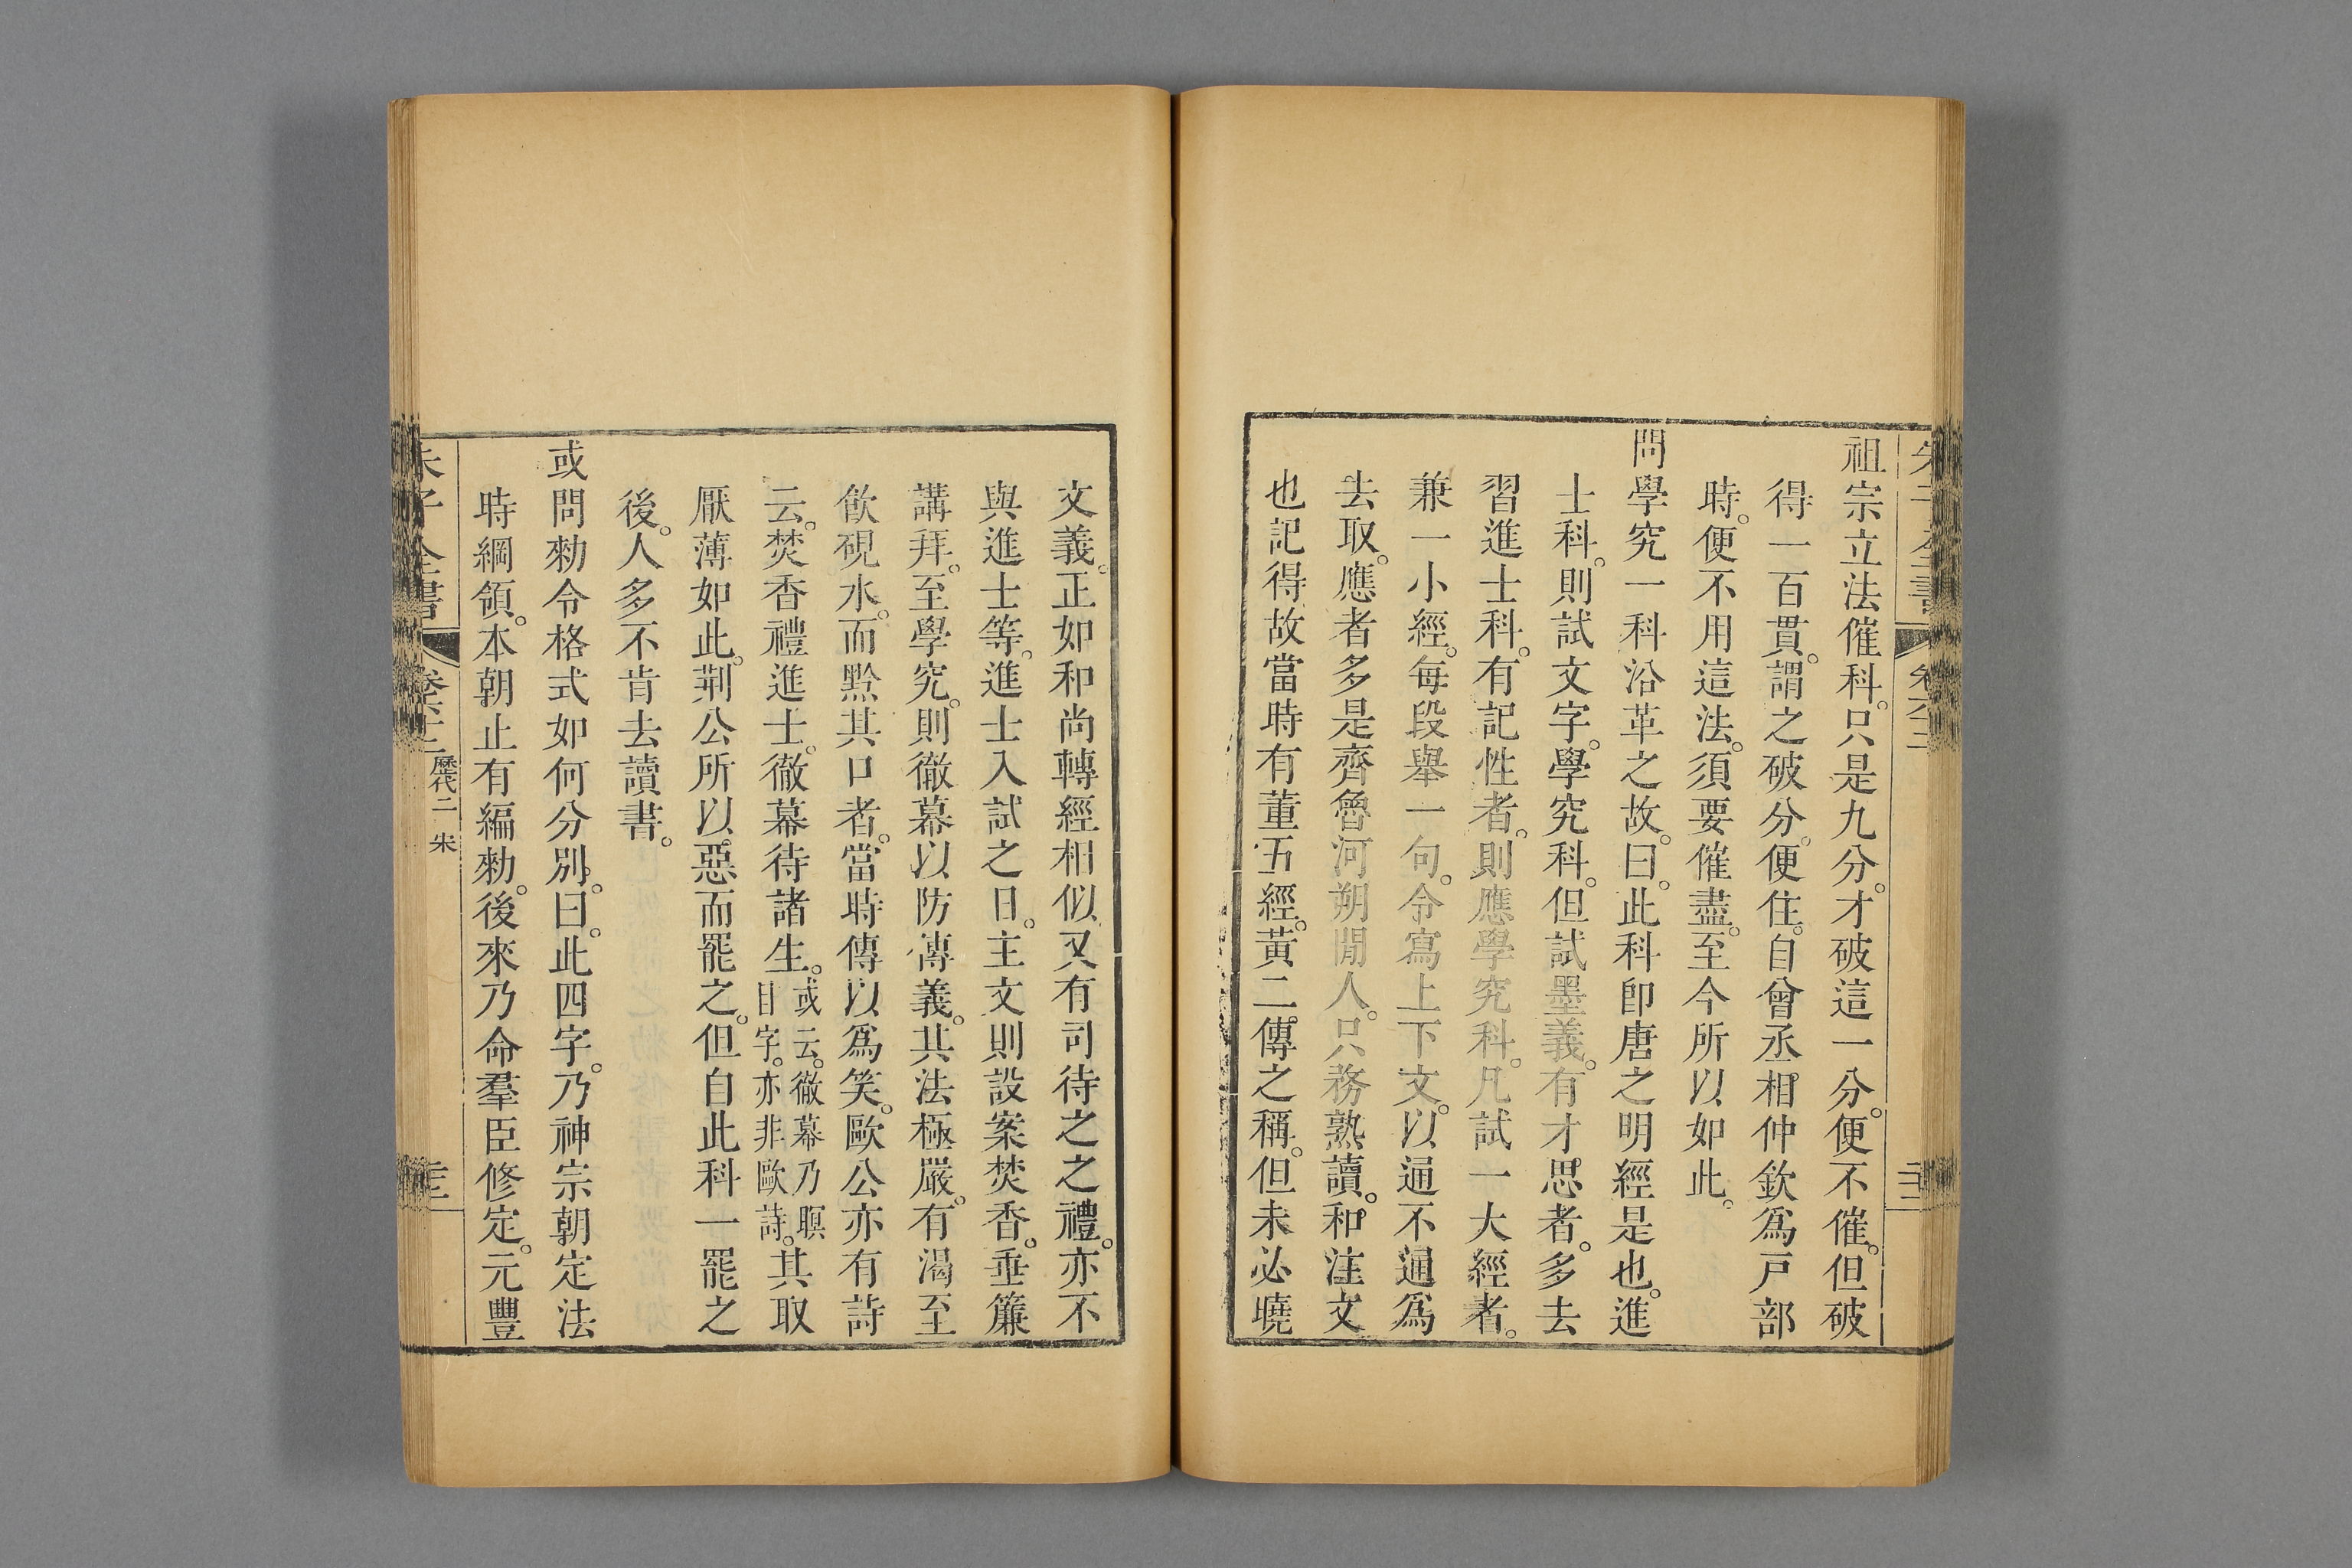 祖宗立法催科。只是九分。才破這一分。便不催。但破
得一百貫。謂之破分。便住。自曾丞相仲欽爲戸部
時。便不用這法。須要催盡。至今所以如此。
問學究一科沿革之故。曰。此科卽唐之明經是也。進
士科。則試文字。學究科。但試墨義。有才思者。多去
習進士科。有記性者。則應學究科。凡試一大經者。
兼一小經。每段舉一句。令寫上下文。以通不通爲
去取。應者多是齊魯河朔閒人。只務熟讀。和注文
也記得故當時有董五經。黃二傳之稱。但未必曉
文義。正如和尚轉經相似。又有司待之之禮。亦不
與進士等。進士入試之日。主文則設案焚香。垂簾
講拜。至學究。則徹幕以防傳義。其法極嚴。有渴至
飮硯水。而黔其口者。當時傳以爲笑。歐公亦有詩
云。焚香禮進士。徹幕待諸生。或云。徹幕乃瞑目字。亦非歐詩。其取
厭薄如此。荆公所以惡而罷之。但自此科一罷之
後。人多不肯去讀書。
或問勑令格式如何分別。曰。此四字。乃神宗朝定法
時綱領。本朝止有編勑。後來乃命羣臣修定。元豐
朱子全書 卷六十二 歷代二 宋